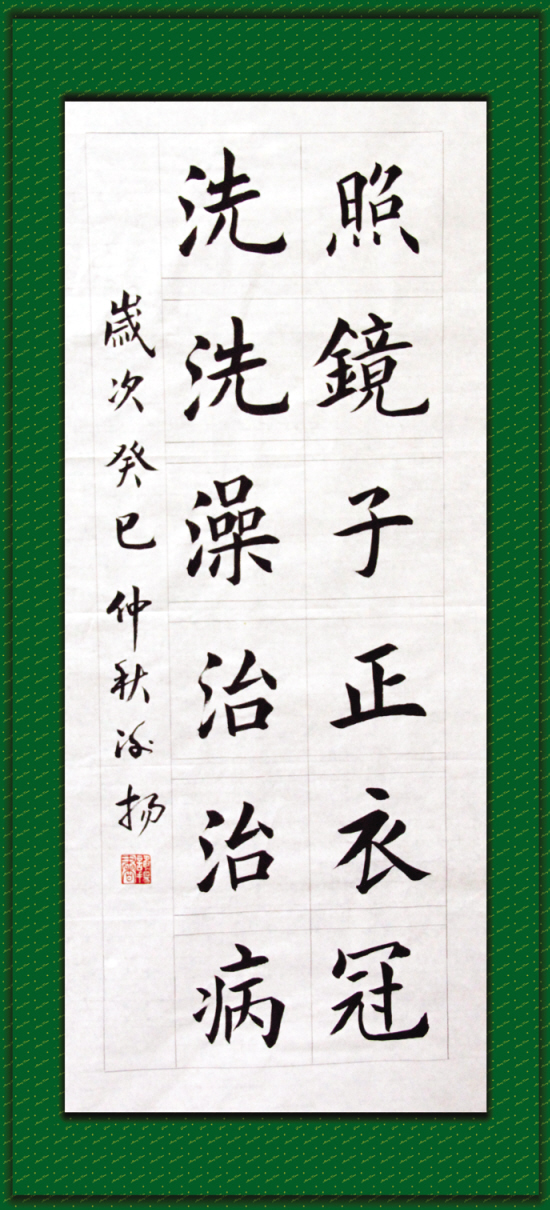 照鏡子正衣冠
洗洗澡治治病
歲次癸巳仲秋 扬